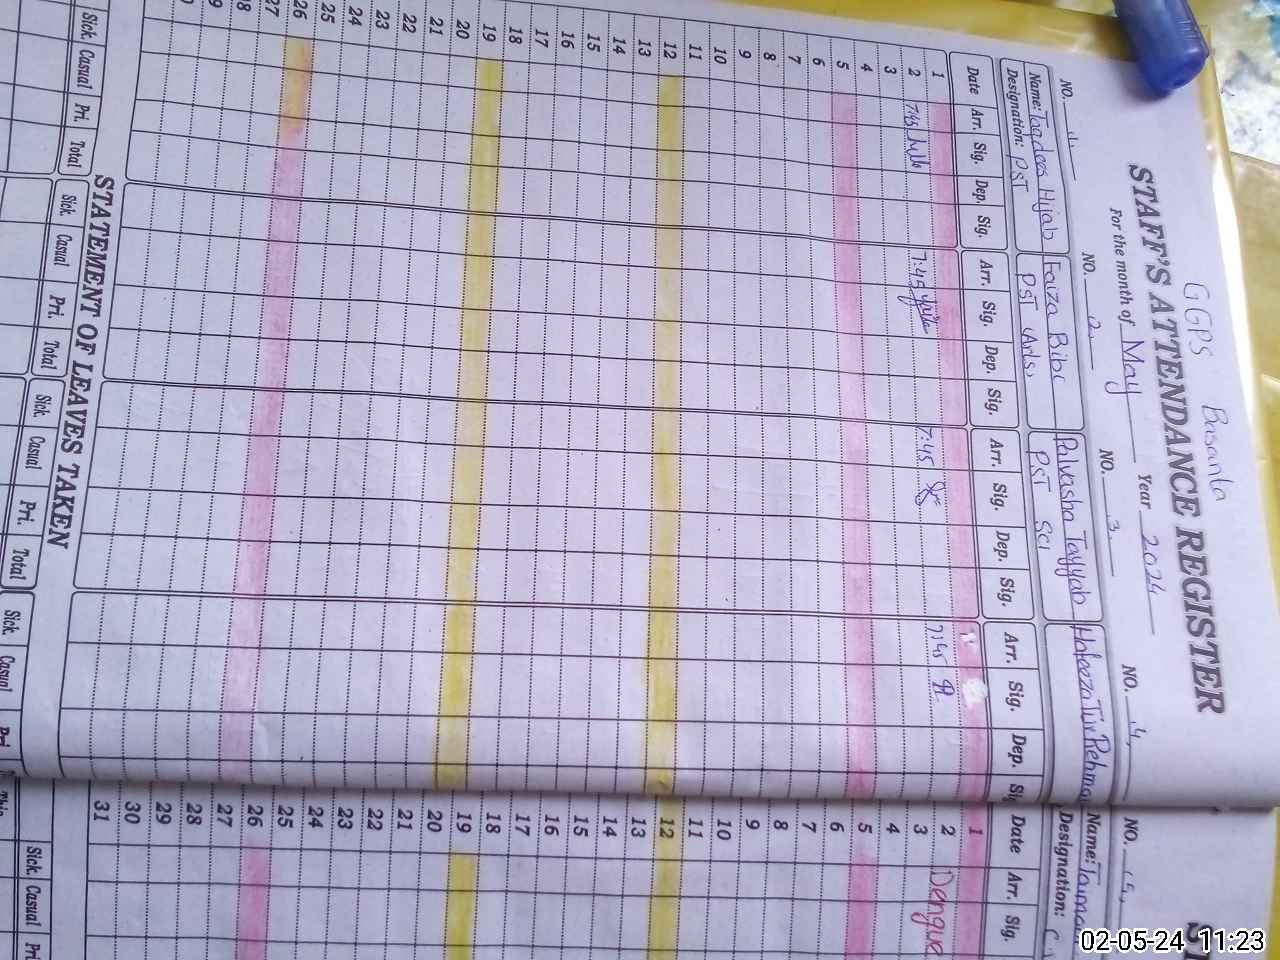 GGPS Basanta
STAFF'S ATTENDANCE REGISTER
For the month of May Year 2024
NO. 1, NO. 2, NO. 3 NO. 4,
Name: Taadees Hijab Faiza Bibi Palvasha Tayyab Hafeeza Tur Rehma
Designation: PST PST Arts, PST Sci
Date Arr. Sig. Dep. Sig. Arr. Sig. Dep. Sig. Arr. Sig. Dep. Sig. Arr. Sig. Dep. Sig
1
2 7:45 7:45 7:45 7:45
3
4
5
6
7
8
9
10
11
12
13
14
15
16
17
18
19
20
21
22
23
24
25
26
27
STATEMENT OF LEAVES TAKEN
Sick. Casual Pri. Total Sick. Casual Pri. Total Sick. Casual Pri. Total Sick. Casual Pri
NO. 5,
Name:
Designation:
Date Arr. Sig.
1
2 Dengue
3
4
5
6
7
8
9
10
11
12
13
14
15
16
17
18
19
20
21
22
23
24
25
26
27
28
29
30
31
Sick. Casual Pri
02-05-24 11:23